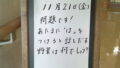 11月21日(金)
問題です!
あたまに「は」を
つけると話しだす
野菜は何でしょう